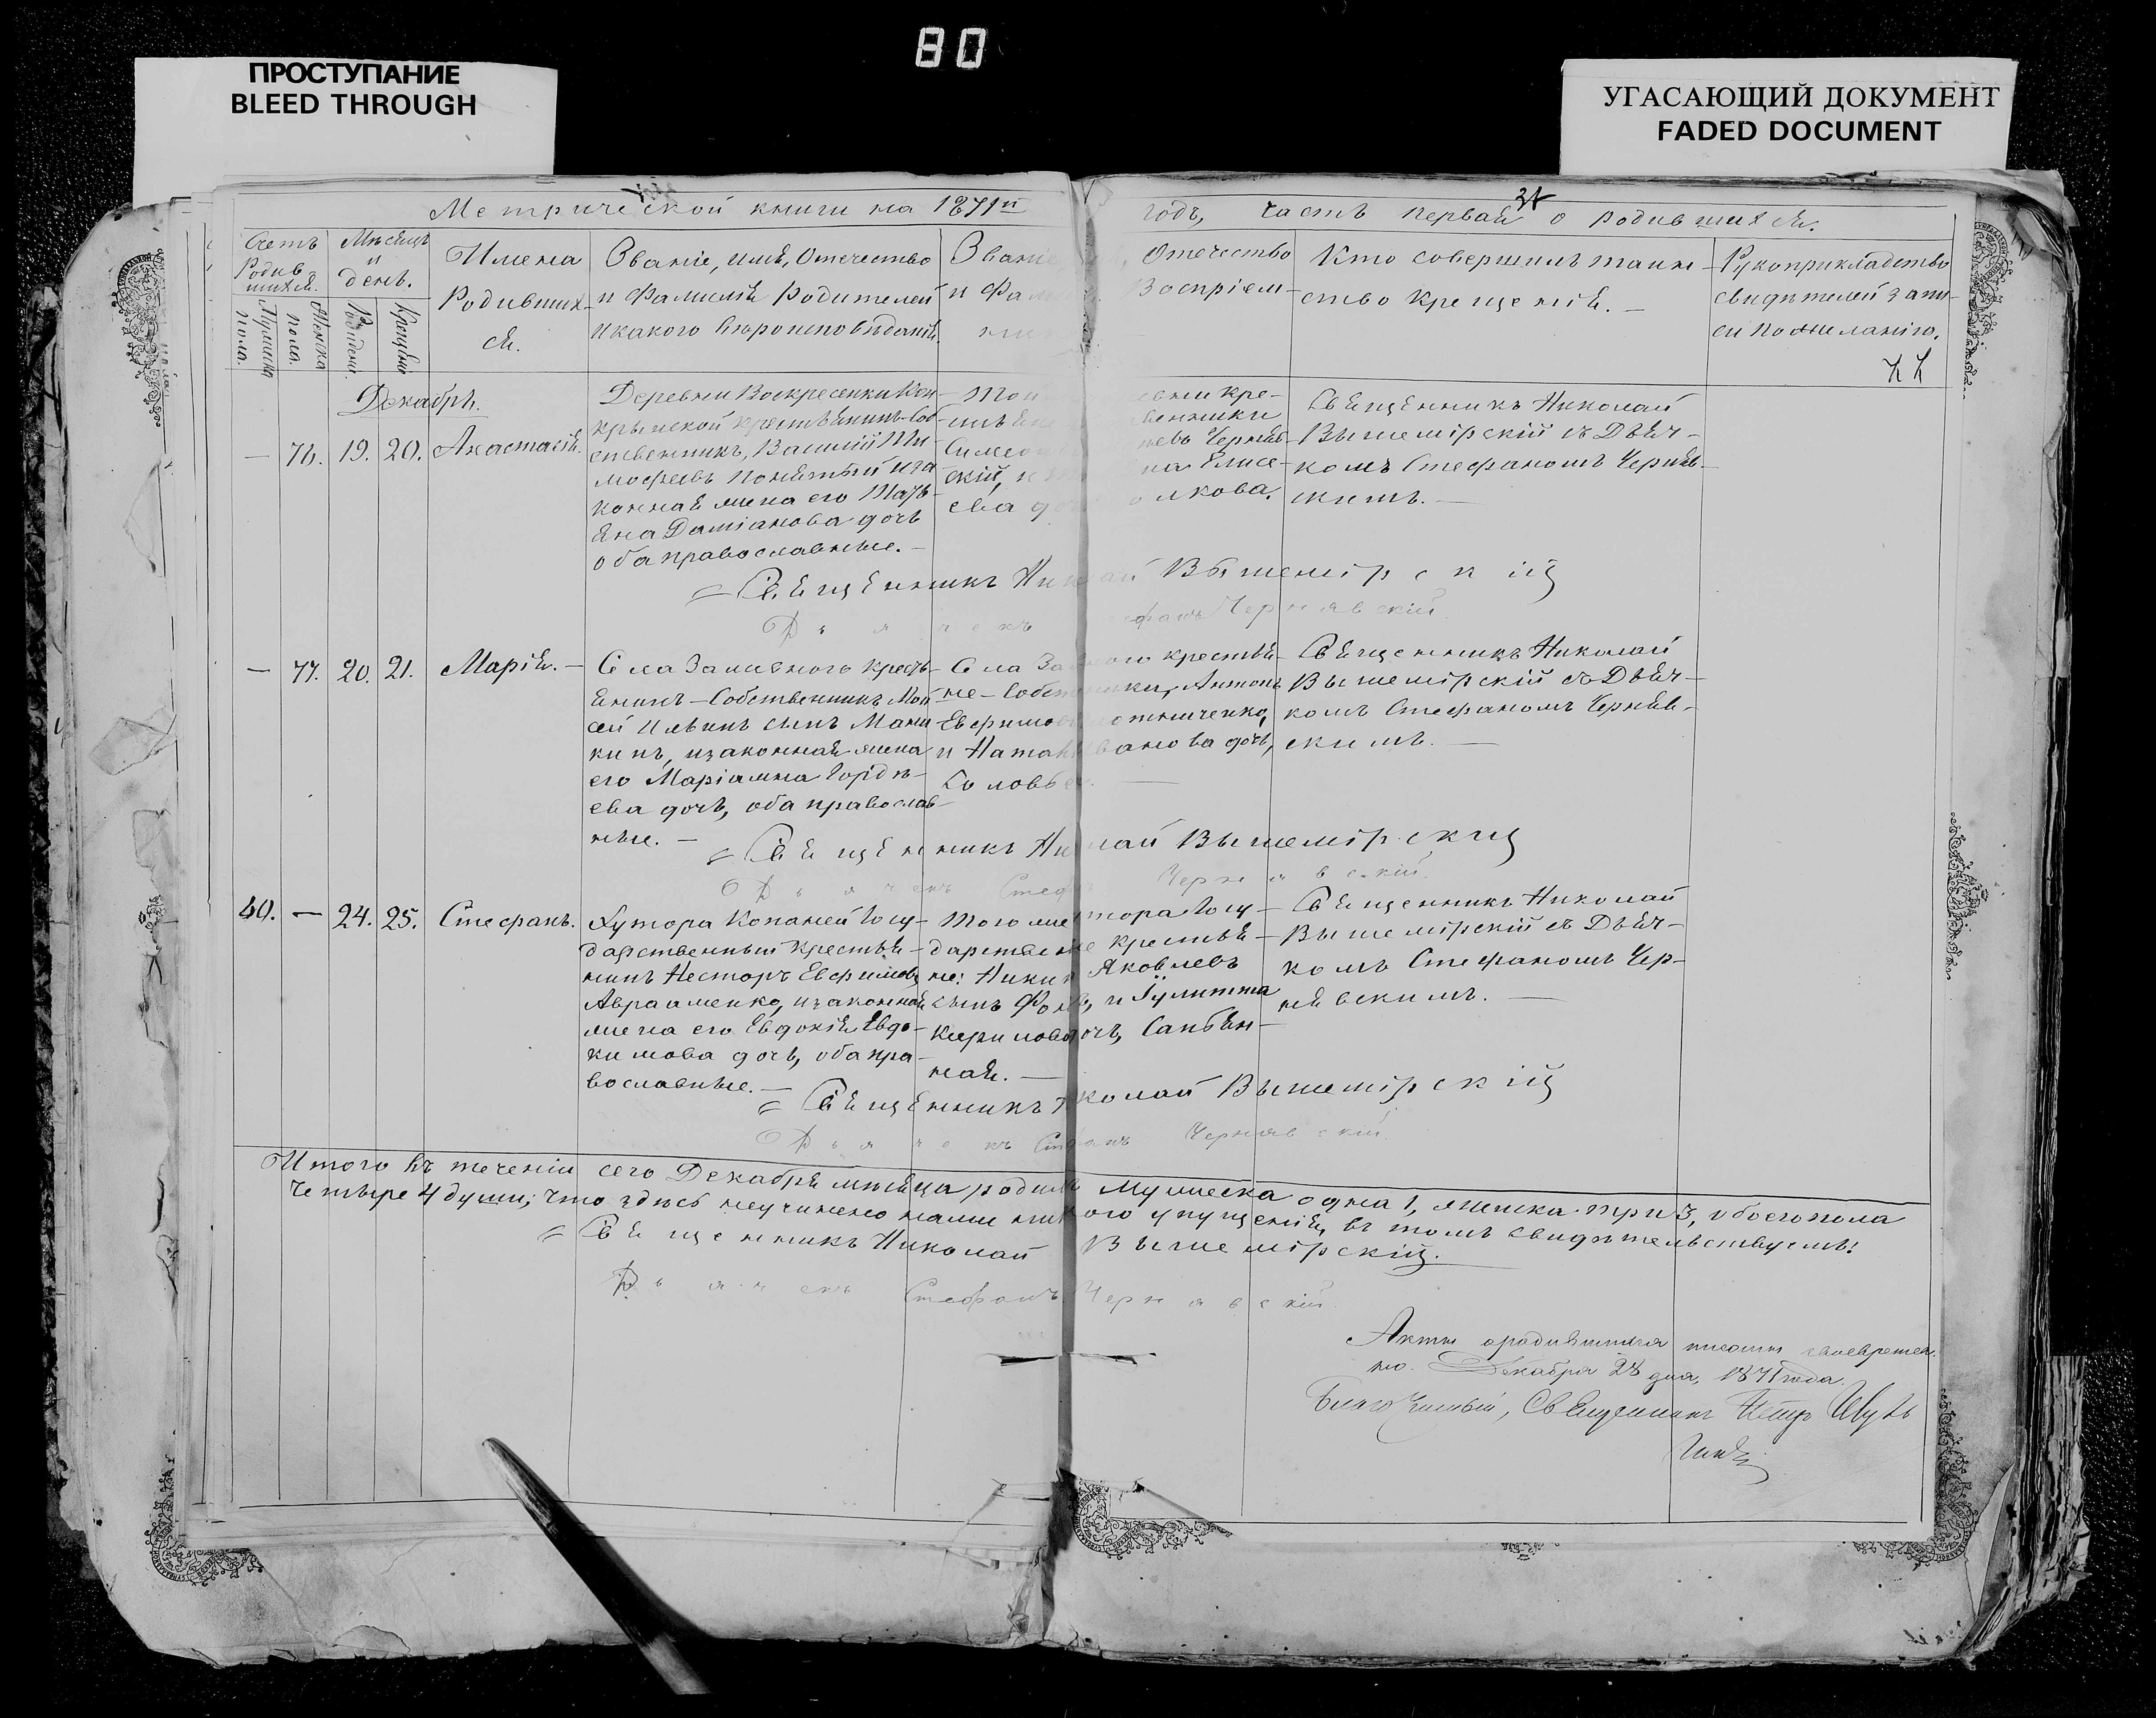 80
ПРОСТУПАНИЕ
BLEED THROUGH
УГАСАЮЩИЙ ДОКУМЕНТ
FADED DOCUMENT
Метрической книги на 1871й годъ, часть первая о родившихся.
Счетъ Родившихся.
Мужеска пола.
Женска пола.
Мѣсяцъ и день.
Рожденія.
Крещенія
Имена Родившихся.
Званіе, имя, Отечество
и Фамилія Родителей
и какого вѣроисповѣданія.
Званіе Отечество
и Фами Воспріем-
Кто совершилъ таин-
ство крещенія.
Рукоприкладство
свидѣтелей запи-
си по желанію.
Декабрь.
— 76. 19. 20. Анастасія.
Деревни Воскресенки
крестьянинъ-соб-
ственникъ, Василій Ти-
мофеевъ и за-
конная жена его Тать-
яна Даміанова дочь
оба православные. —
Той кре-
Симеон
скій, на Елисе-
ева доч лкова.
Священникъ Николай
Вышемірскій съ Дьяч-
комъ Стефаномъ Черняв-
скимъ. —
Священникъ Николай Вышемірскій
Дьячекъ Стефанъ Чернявскій
— 77. 20. 21. Марія. —
Села Заливного кресть-
янинъ-Собственникъ Мои
сей Ильинъ сынъ Мани
кинъ, и законная жена
его Маріамна Гордѣ-
ева дочь, оба православ-
ные. —
Села За ного крестья-
не-Собственники, Антонъ
Евфимов
и Наталія Иванова дочь,
Соловьев
Священникъ Николай
Вышемірскій съ Дьяч-
комъ Стефаномъ Черняв-
скимъ. —
Священникъ Николай Вышемірскій
Дьячекъ Стефанъ Чернявскій.
40. — 24. 25. Стефанъ.
Хутора Копаней Госу-
дарственный крестья-
нинъ Несторъ Евфимовъ
Авраменко, и законная
жена его Евдокія Евдо-
кимова дочь, оба пра-
вославные. —
Того же хутора Госу-
дарственные крестья-
не: Никита Яковлевъ
сынъ и Іулитта
Кирилова дочь,
ная. —
Священникъ Николай
Вышемірскій съ Дьяч-
комъ Стефаномъ Чер-
нявскимъ. —
Священникъ Николай Вышемірскій
Дьячекъ Стефанъ Чернявскій.
Итого въ теченіи сего Декабря мѣсяца родил Мужеска одна 1, женска три 3, обоего пола
четыре 4 души; что здѣсь неучинено нами никакого упущенія, въ томъ свидѣтельствуемъ:
Священникъ Николай Вышемірскій.
Дьячекъ Стефанъ Чернявскій.
Акты о родившихся писаны своевремен-
но. Декабря 28 дня, 1871 года.
Благочинный, Священникъ Петръ